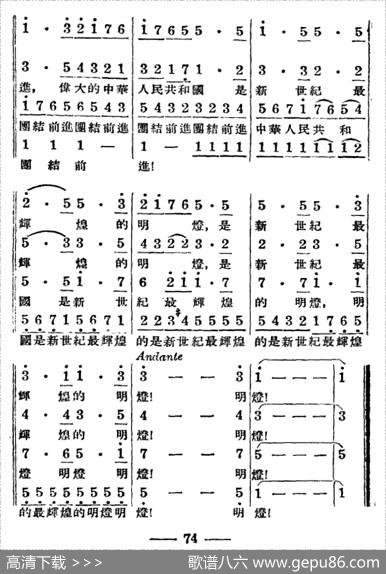 i · 3 2 i 7 6 i 7 6 5 5 · 5 i · 5 5 · 5
3 · 5 4 3 2 1 3 2 1 7 1 · 2 3 · 3 2 · 2
進，偉大的中華 人民共和國 是 新 世紀 最
1 7 6 5 6 5 4 3 5 4 3 2 3 2 3 4 5 6 7 1 7 6 5 4
團結前進團結前進 團結前進團結前進 中華人民共 和
1 1 1 — 1 1 1 1 1 1 1 1 1 1 1 1 1 1 1 2
團 結 前 進！
2 · 5 5 · 3 2 i 7 6 5 · 5 5 · 5 5 · 3
輝 煌 的 明 燈，是 新 世紀 最
5 · 3 3 · 5 4 3 2 2 3 · 2 2 · 2 3 · 5
輝 煌 的 明 燈，是 新 世紀 最
5 · 5 i · 7 6 2 i i · 7 7 · 7 i · i
國 是新 世 紀 最 輝 煌 的 明燈，明
5 6 7 1 5 6 7 1 2 2 3 4 5 5 5 5 5 4 3 2 1 7 6 5
國是新世紀最輝煌 的是新世紀最輝煌 的是新世紀最輝煌
Andante
3 · i i · 3 3 — — 3 i — — — i
輝 煌的 明 燈！ 明 燈！
4 · 4 3 · 5 4 — — 4 3 — — — 3
輝 煌的 明 燈！ 明 燈！
7 · 6 5 · i 7 — — 7 5 — — — 5
燈 明燈 明 燈！ 明 燈！
5 5 5 5 5 5 5 5 5 — — 5 1 — — — 1
的最輝煌的明燈明 燈！ 明 燈！
— 74 —
高清下载 >>> 歌谱八六 www.gepu86.com